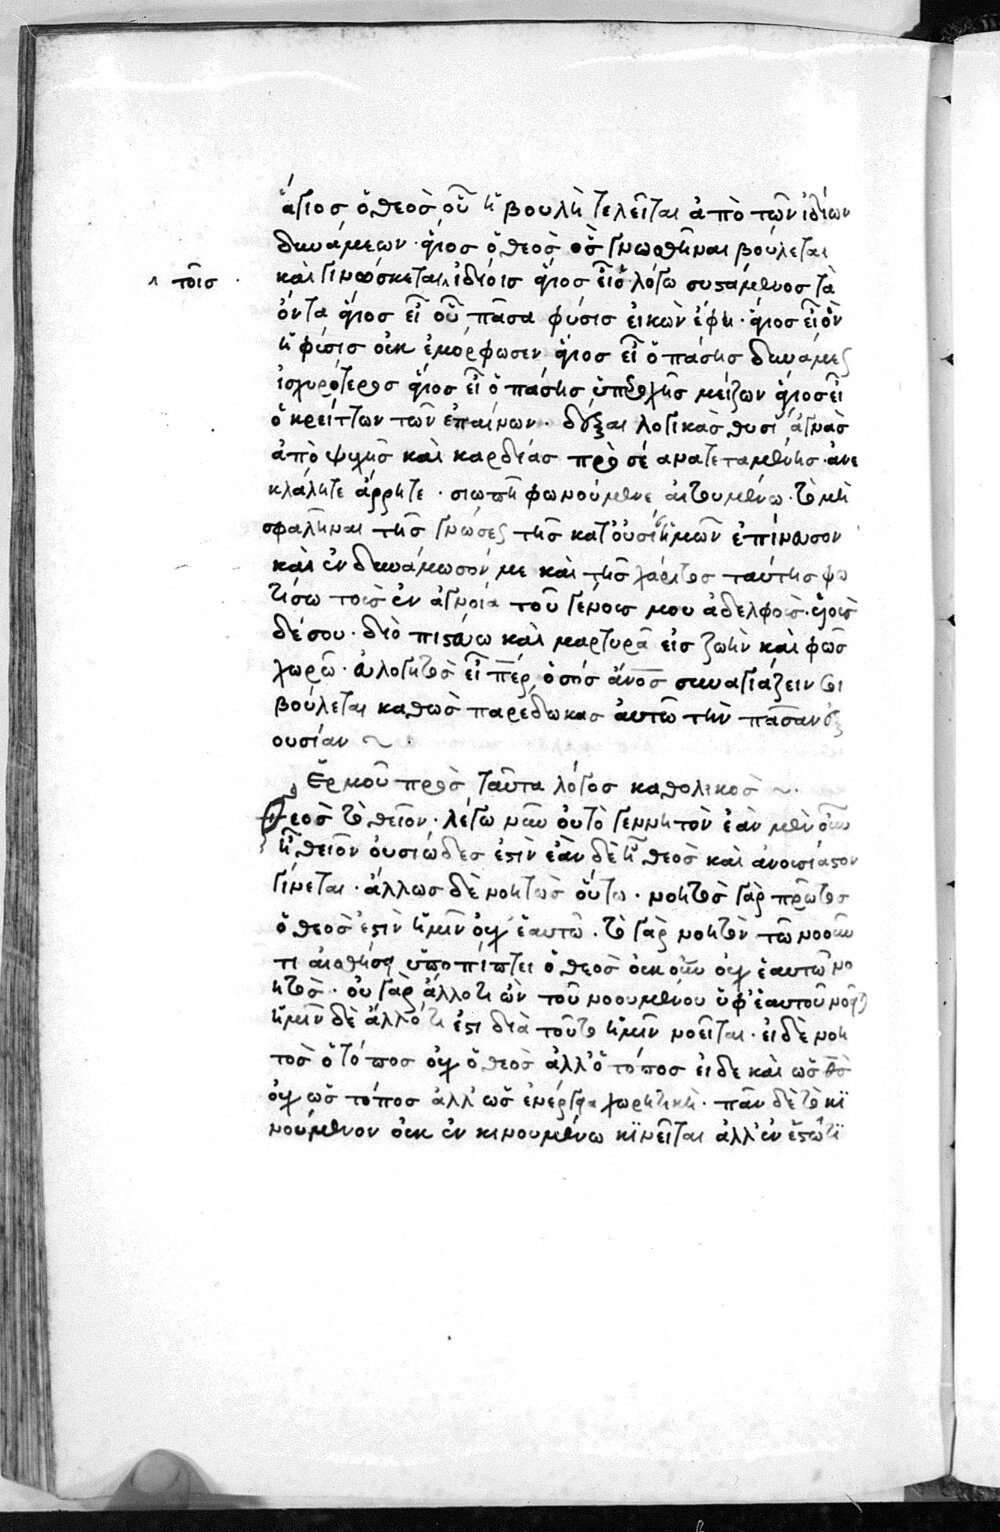 ἅγιος ὁ θεὸς οὗ ἡ βουλὴ τελεῖται ἀπὸ τῶν ἰδίων
δυνάμεων · ἅγιος ὁ θεὸς ὃς γνωσθῆναι βούλεται
καὶ γινώσκεται ‸ ἰδίοις ἅγιος εἶ ὁ λόγω συστάμενος τὰ
‸ τοῖς
ὄντα ἅγιος εἶ οὗ πᾶσα φύσις εἰκὼν ἔφη · ἅγιος εἶ ὃν
ἡ φύσις οὐκ ἐμόρφωσεν ἅγιος εἶ ὁ πάσης δυνάμεως
ἰσχυρότερος ἅγιος εἶ ὁ πάσης ὑπεροχῆς μείζων ἅγιος εἶ
ὁ κρείττων τῶν ἐπαίνων · δέξαι λογικὰς θυσίας ἁγνὰς
ἀπὸ ψυχῆς καὶ καρδίας πρὸς σέ ἀνατεταμένης · ἀνε
κλάλητε ἄρρητε · σιωπῆ φωνούμενε αἰτουμένω · τὸ μὴ
σφαλῆναι τῆς γνώσεως τῆς κατ' οὐσίαν ἡμῶν ἐπίνευσον
καὶ ἐνδυνάμωσόν με καὶ τῆς χάριτος ταύτης φω
τίσω τοὺς ἐν ἀγνοία τοῦ γένους μου ἀδελφοὺς · υἱοὺς
δέ σου · διὸ πιστεύω καὶ μαρτυρῶ εἰς ζωὴν καὶ φῶς
χωρῶ · εὐλογητὸς εἶ περ ὁ σὸς ἄνος συναγιάζειν σοι
βούλεται καθὼς παρέδωκας αὐτῶ τὴν πᾶσαν ἐξ
ουσίαν ~ ·
Ἑρμοῦ πρὸς τατα λόγος καθολικὸς ~ ·
Θεὸς τὸ θεῖον · λέγω νῦν οὐ τὸ γεννητὸν ἐὰν μὲν οὖν
ἦ θεῖον οὐσιώδες ἐστὶν ἐὰν δὲ ἦ θεὸς καὶ ἀνουσίαστον
γίνεται · ἄλλως δὲ νοητὸς οὕτω · νοητὸς γὰρ πρῶτος
ὁ θεὸς ἐστὶν ἡμῖν οὐχ ἑαυτῶ · τὸ γὰρ νοητὸν τῶ νοοῦν
τι αἰσθήσει ὑποπίπτει ὁ θεὸς οὐκ οὖν οὐχ ἑαυτῶ νο
ητὸς · οὐ γὰρ ἄλλο τι ὢν τοῦ νοουμένου ὑφ' ἑαυτοῦ νοεῖται
ἡμῖν δὲ ἄλλό τι ἐστι διὰ τοῦτο ἡμῖν νοεῖται · εἰ δὲ νοη
τὸς ὁ τόπος οὐχ ὁ θεὸς ἀλλ' ὁ τόπος εἰ δε καὶ ὡς θς
οὐχ ὡς τόπος ἀλλ' ὡς ἐνέργεια χωρητικὴ · πᾶν δὲ τὸ κι
νούμενον οὐκ ἐν κινουμένω κινεῖται ἀλλ' ἐν ἑστῶτι